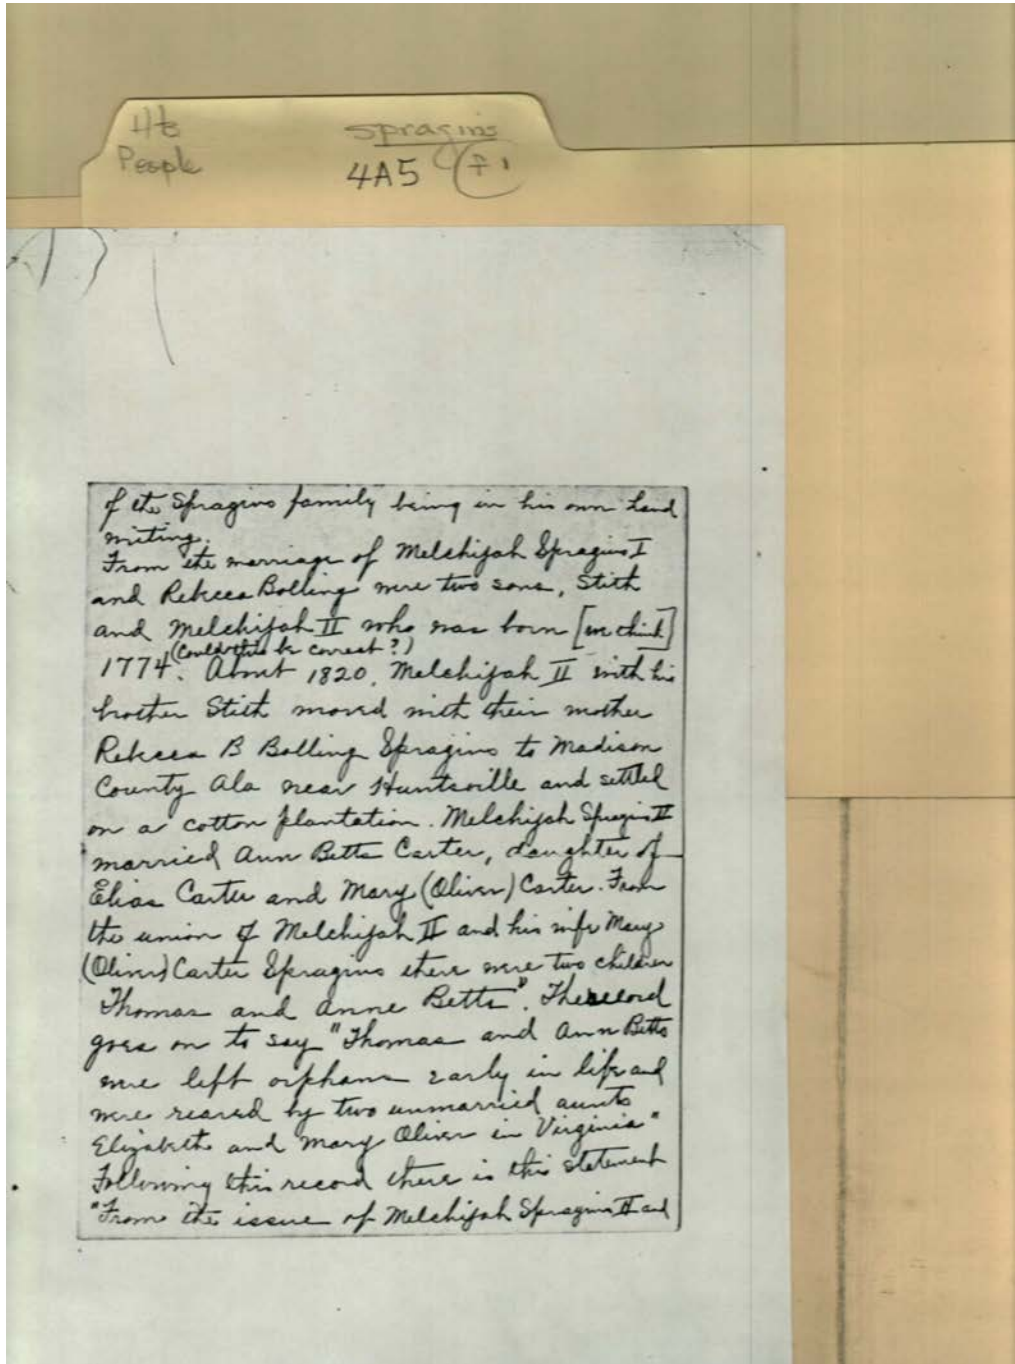 Hts
People
Spragins
4A5
of the Spragins family being in his own hand
writing.
From the marriage of Melchijah Spragins I
and Rebecca Bolling were two sons, Stith
and Melchijah II who was born [we think]
(Could this be correct?)
1774. About 1820, Melchijah II with his
brother Stith moved with their mother
Rebecca B Bolling Spragins to Madison
County Ala near Huntsville and settled
on a cotton plantation. Melchijah Spragins II
married Ann Betts Carter, daughter of
Elias Carter and Mary (Oliver) Carter. From
the union of Melchijah II and his wife Mary
(Oliver) Carter Spragins there were two children
Thomas and Anne Betts". The record
goes on to say "Thomas and Ann Betts
were left orphans early in life and
were reared by two unmarried aunts
Elizabeth and Mary Oliver in Virginia"
Following this record there is this statement
"From the issue of Melchijah Spragins II and